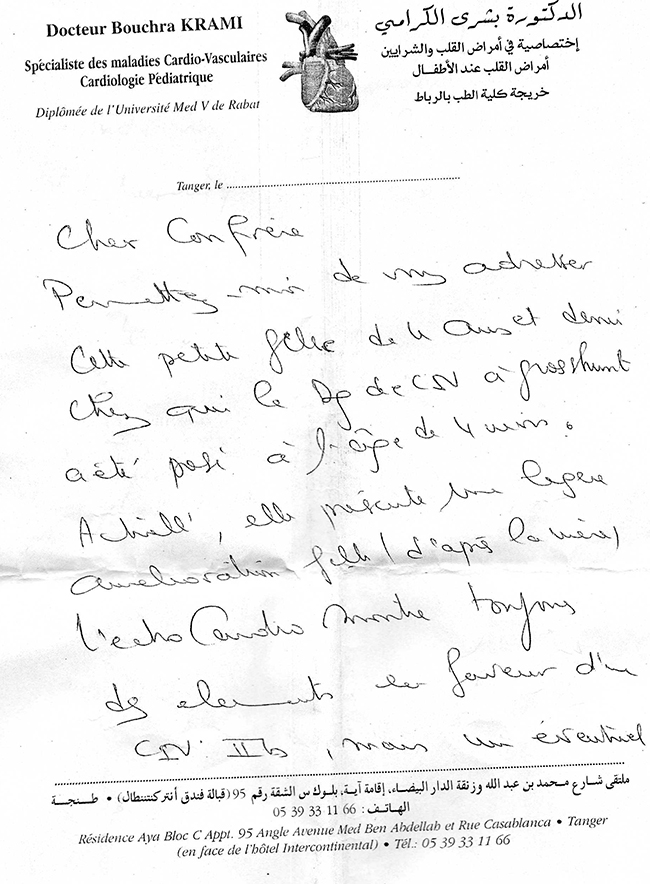 Docteur Bouchra KRAMI
Spécialiste des maladies Cardio-Vasculaires
Cardiologie Pédiatrique
Diplômée de l'Université Med V de Rabat
الدكتورة بشرى الكرامي
إختصاصية في أمراض القلب والشرايين
أمراض القلب عند الأطفال
خريجة كلية الطب بالرباط
Tanger, le
Cher Confrère
Permettez-moi de vous adresser
Cette petite fille de 4 ans et demi
Chez qui le Dg de CIV à gros shunt
a été posé à l'âge de 4 mois.
Actuell', elle présente une légère
amélioration felle (d'après la mère)
L'echo Cardio montre toujours
des elements en faveur d'une
CIV IIb, mais un éventuel
ملتقى شارع محمد بن عبد الله وزنقة الدار البيضاء، إقامة آية، بلوك س الشقة رقم 95 (قبالة فندق أنتركنتننطال) • طنجة
الهاتف : 05 39 33 11 66
Résidence Aya Bloc C Appt. 95 Angle Avenue Med Ben Abdellah et Rue Casablanca • Tanger
(en face de l'hôtel Intercontinental) • Tél.: 05 39 33 11 66